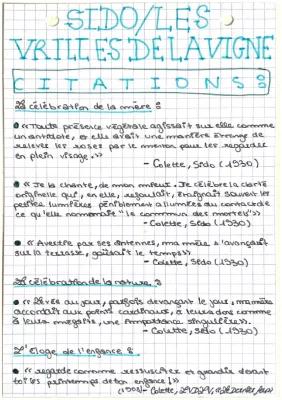 SIDO/LES
VRILLES DE LA VIGNE
CITATIONS :
La célébration de la mère :
• « Toute présence végétale agissait sur elle comme
un antidote, et elle avait une manière étrange de
relever les roses par le menton pour les regarder
en plein visage. »
- Colette, Sido (1930)
• « Je la chante, de mon mieux. Je célèbre la clarté
originelle qui, en elle, refoulait, éteignait souvent les
petites lumières péniblement allumées au contact de
ce qu'elle nommait "le commun des mortels" »
- Colette, Sido (1930)
• « Avertie par ses antennes, ma mère s'avançait
sur la terrasse, goûtait le temps »
- Colette, Sido (1930)
La célébration de la nature :
• « Levée au jour, parfois devançant le jour, ma mère
accordait aux points cardinaux, à leurs dons comme
à leurs méfaits, une importance singulière. »
- Colette, Sido (1930)
L'éloge de l'enfance :
• « regarde comme ressuscite et grandit devant
toi les printemps de ton enfance ! »
(1908) - Colette,